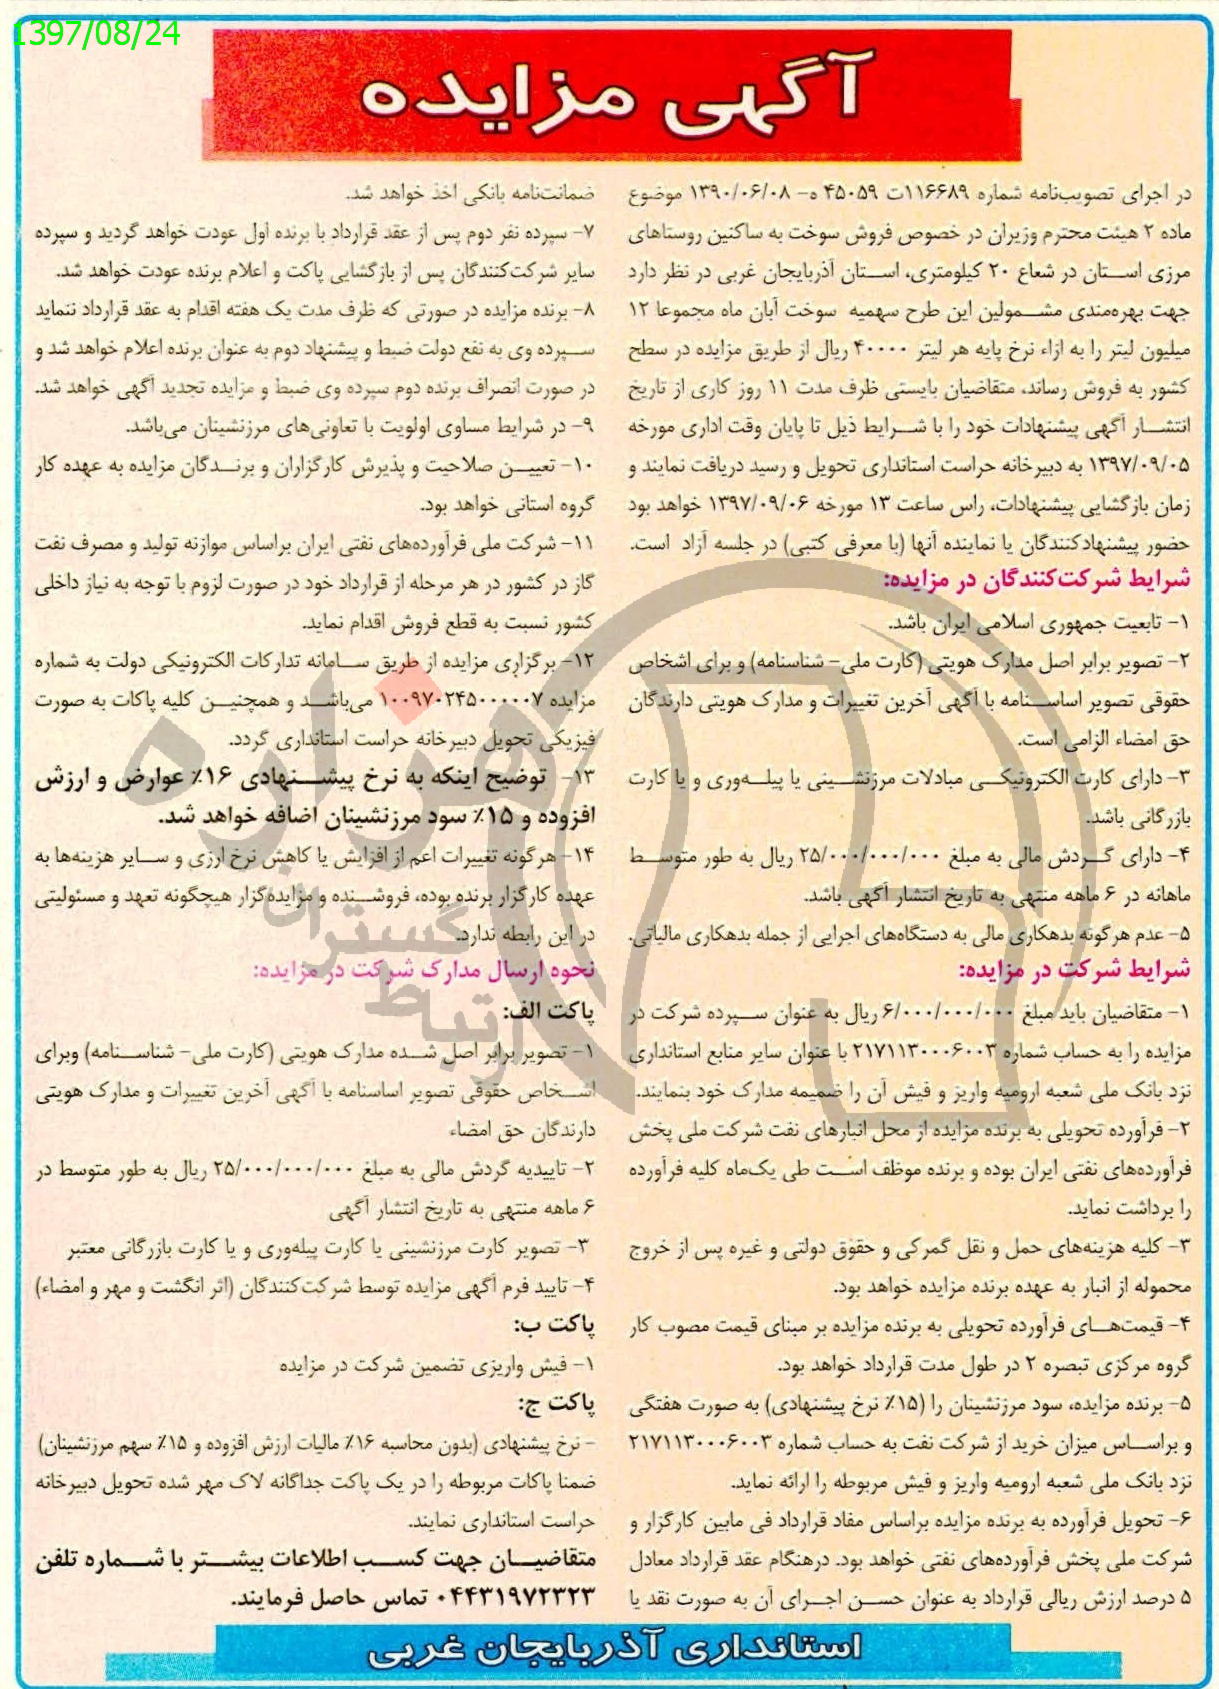 1397/08/24
آگهی مزایده
در اجرای تصویب‌نامه شماره ۱۱۶۶۸۹ت ۴۵۰۵۹ ه- ۱۳۹۰/۰۶/۰۸ موضوع
ماده ۲ هیئت محترم وزیران در خصوص فروش سوخت به ساکنین روستاهای
مرزی استان در شعاع ۲۰ کیلومتری، استان آذربایجان غربی در نظر دارد
جهت بهره‌مندی مشمولین این طرح سهمیه سوخت آبان ماه مجموعا ۱۲
میلیون لیتر را به ازاء نرخ پایه هر لیتر ۴۰۰۰۰ ریال از طریق مزایده در سطح
کشور به فروش رساند، متقاضیان بایستی ظرف مدت ۱۱ روز کاری از تاریخ
انتشار آگهی پیشنهادات خود را با شرایط ذیل تا پایان وقت اداری مورخه
۱۳۹۷/۰۹/۰۵ به دبیرخانه حراست استانداری تحویل و رسید دریافت نمایند و
زمان بازگشایی پیشنهادات، راس ساعت ۱۳ مورخه ۱۳۹۷/۰۹/۰۶ خواهد بود
حضور پیشنهادکنندگان یا نماینده آنها (با معرفی کتبی) در جلسه آزاد است.
شرایط شرکت‌کنندگان در مزایده:
۱- تابعیت جمهوری اسلامی ایران باشد.
۲- تصویر برابر اصل مدارک هویتی (کارت ملی- شناسنامه) و برای اشخاص
حقوقی تصویر اساسنامه با آگهی آخرین تغییرات و مدارک هویتی دارندگان
حق امضاء الزامی است.
۳- دارای کارت الکترونیکی مبادلات مرزنشینی یا پیله‌وری و یا کارت
بازرگانی باشد.
۴- دارای گردش مالی به مبلغ ۲۵/۰۰۰/۰۰۰/۰۰۰ ریال به طور متوسط
ماهانه در ۶ ماهه منتهی به تاریخ انتشار آگهی باشد.
۵- عدم هرگونه بدهکاری مالی به دستگاه‌های اجرایی از جمله بدهکاری مالیاتی.
شرایط شرکت در مزایده:
۱- متقاضیان باید مبلغ ۶/۰۰۰/۰۰۰/۰۰۰ ریال به عنوان سپرده شرکت در
مزایده را به حساب شماره ۲۱۷۱۱۳۰۰۰۶۰۰۳ با عنوان سایر منابع استانداری
نزد بانک ملی شعبه ارومیه واریز و فیش آن را ضمیمه مدارک خود بنمایند.
۲- فرآورده تحویلی به برنده مزایده از محل انبارهای نفت شرکت ملی پخش
فرآورده‌های نفتی ایران بوده و برنده موظف است طی یک‌ماه کلیه فرآورده
را برداشت نماید.
۳- کلیه هزینه‌های حمل و نقل گمرکی و حقوق دولتی و غیره پس از خروج
محموله از انبار به عهده برنده مزایده خواهد بود.
۴- قیمت‌های فرآورده تحویلی به برنده مزایده بر مبنای قیمت مصوب کار
گروه مرکزی تبصره ۲ در طول مدت قرارداد خواهد بود.
۵- برنده مزایده، سود مرزنشینان را (۱۵٪ نرخ پیشنهادی) به صورت هفتگی
و براساس میزان خرید از شرکت نفت به حساب شماره ۲۱۷۱۱۳۰۰۰۶۰۰۳
نزد بانک ملی شعبه ارومیه واریز و فیش مربوطه را ارائه نماید.
۶- تحویل فرآورده به برنده مزایده براساس مفاد قرارداد فی مابین کارگزار و
شرکت ملی پخش فرآورده‌های نفتی خواهد بود. درهنگام عقد قرارداد معادل
۵ درصد ارزش ریالی قرارداد به عنوان حسن اجرای آن به صورت نقد یا
ضمانت‌نامه بانکی اخذ خواهد شد.
۷- سپرده نفر دوم پس از عقد قرارداد با برنده اول عودت خواهد گردید و سپرده
سایر شرکت‌کنندگان پس از بازگشایی پاکت و اعلام برنده عودت خواهد شد.
۸- برنده مزایده در صورتی که ظرف مدت یک هفته اقدام به عقد قرارداد ننماید
سپرده وی به نفع دولت ضبط و پیشنهاد دوم به عنوان برنده اعلام خواهد شد و
در صورت انصراف برنده دوم سپرده وی ضبط و مزایده تجدید آگهی خواهد شد.
۹- در شرایط مساوی اولویت با تعاونی‌های مرزنشینان می‌باشد.
۱۰- تعیین صلاحیت و پذیرش کارگزاران و برندگان مزایده به عهده کار
گروه استانی خواهد بود.
۱۱- شرکت ملی فرآورده‌های نفتی ایران براساس موازنه تولید و مصرف نفت
گاز در کشور در هر مرحله از قرارداد خود در صورت لزوم با توجه به نیاز داخلی
کشور نسبت به قطع فروش اقدام نماید.
۱۲- برگزاری مزایده از طریق سامانه تدارکات الکترونیکی دولت به شماره
مزایده ۱۰۰۹۷۰۲۴۵۰۰۰۰۰۷ می‌باشد و همچنین کلیه پاکات به صورت
فیزیکی تحویل دبیرخانه حراست استانداری گردد.
۱۳- توضیح اینکه به نرخ پیشنهادی ۱۶٪ عوارض و ارزش
افزوده و ۱۵٪ سود مرزنشینان اضافه خواهد شد.
۱۴- هرگونه تغییرات اعم از افزایش یا کاهش نرخ ارزی و سایر هزینه‌ها به
عهده کارگزار برنده بوده، فروشنده و مزایده‌گزار هیچگونه تعهد و مسئولیتی
در این رابطه ندارد.
نحوه ارسال مدارک شرکت در مزایده:
پاکت الف:
۱- تصویر برابر اصل شده مدارک هویتی (کارت ملی- شناسنامه) وبرای
اشخاص حقوقی تصویر اساسنامه با آگهی آخرین تغییرات و مدارک هویتی
دارندگان حق امضاء
۲- تاییدیه گردش مالی به مبلغ ۲۵/۰۰۰/۰۰۰/۰۰۰ ریال به طور متوسط در
۶ ماهه منتهی به تاریخ انتشار آگهی
۳- تصویر کارت مرزنشینی یا کارت پیله‌وری و یا کارت بازرگانی معتبر
۴- تایید فرم آگهی مزایده توسط شرکت‌کنندگان (اثر انگشت و مهر و امضاء)
پاکت ب:
۱- فیش واریزی تضمین شرکت در مزایده
پاکت ج:
- نرخ پیشنهادی (بدون محاسبه ۱۶٪ مالیات ارزش افزوده و ۱۵٪ سهم مرزنشینان)
ضمنا پاکات مربوطه را در یک پاکت جداگانه لاک مهر شده تحویل دبیرخانه
حراست استانداری نمایند.
متقاضیان جهت کسب اطلاعات بیشتر با شماره تلفن
۰۴۴۳۱۹۷۲۳۲۳ تماس حاصل فرمایند.
استانداری آذربایجان غربی
هزاره
گستران
ارتباط